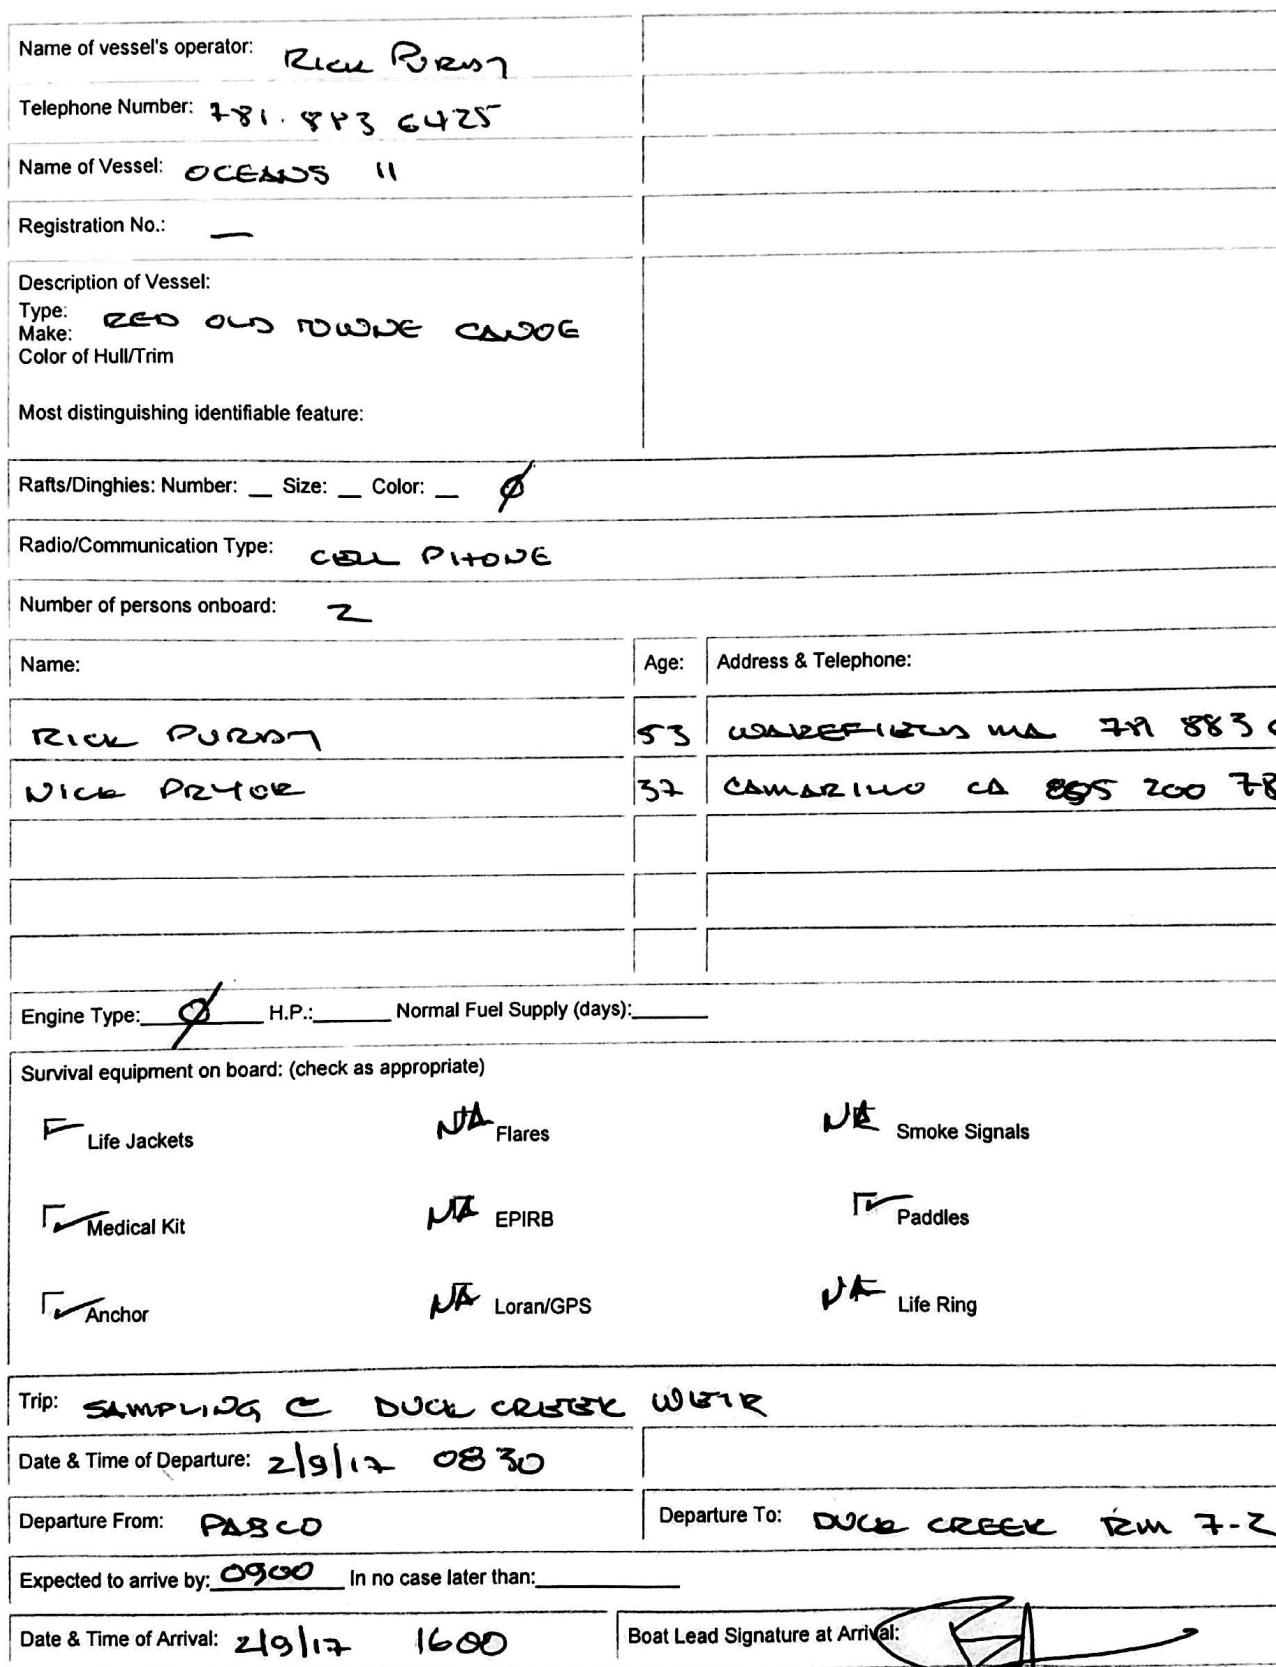 Name of vessel's operator: RICK PURDY
Telephone Number: 781. 883 6425
Name of Vessel: OCEANS 11
Registration No.: —
Description of Vessel:
Type:
Make: RED OLD TOWNE CANOE
Color of Hull/Trim
Most distinguishing identifiable feature:
Rafts/Dinghies: Number: __ Size: __ Color: __ Ø
Radio/Communication Type: CELL PHONE
Number of persons onboard: 2
Name: Age: Address & Telephone:
RICK PURDY 53 WAKEFIELD MA 781 883
NICK PRYOR 37 CAMARILLO CA 805 200 78
Engine Type: Ø H.P.:______ Normal Fuel Supply (days):______
Survival equipment on board: (check as appropriate)
Life Jackets NA Flares NA Smoke Signals
✓ Medical Kit NA EPIRB ✓ Paddles
✓ Anchor NA Loran/GPS NA Life Ring
Trip: SAMPLING @ DUCK CREEK WEIR
Date & Time of Departure: 2/9/17 0830
Departure From: PABCO Departure To: DUCK CREEK RM 7-2
Expected to arrive by: 0900 In no case later than:______
Date & Time of Arrival: 2/9/17 1600 Boat Lead Signature at Arrival: